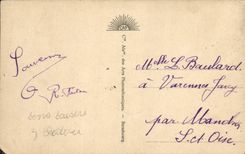 Souvenir
Cie Alsne des Arts Photomécaniques - Strasbourg
Mlle L. Baulard
à Varennes Jarcy
par Mandres
S. et Oise.
bons baisers